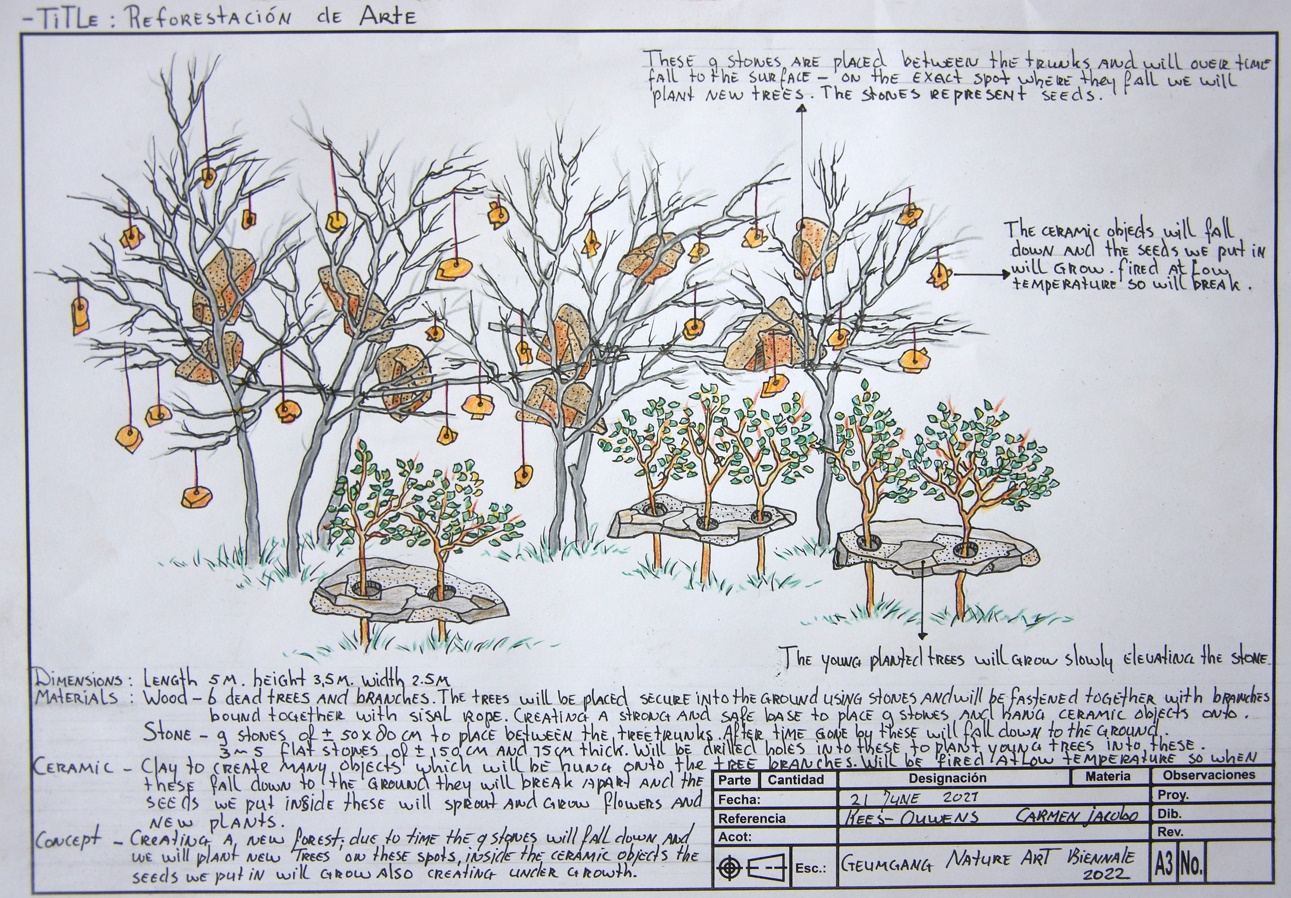 -TiTLE : Reforestación de Arte
These 9 stones are placed between the trunks and will over time
fall to the surface - on the exact spot where they fall we will
plant new trees. The stones represent seeds.
The ceramic objects will fall
down and the seeds we put in
will grow. fired at low
temperature so will break.
The young planted trees will grow slowly elevating the stone.
Dimensions: Length 5M. height 3,5M. width 2.5M
Materials : Wood - 6 dead trees and branches. The trees will be placed secure into the ground using stones and will be fastened together with branches
bound together with sisal rope. Creating a strong and safe base to place 9 stones and hang ceramic objects onto.
Stone - 9 stones of ± 50x80 cm to place between the treetrunks. After time gone by these will fall down to the ground.
3~5 flat stones of ± 150 cm and 75cm thick. Will be drilled holes into these to plant young trees into these.
Ceramic - Clay to create many objects which will be hung onto the tree branches. Will be fired at low temperature so when
these fall down to the ground they will break apart and the
seeds we put inside these will sprout and grow flowers and
new plants.
Concept - Creating a new forest; due to time the 9 stones will fall down and
we will plant new trees on these spots, inside the ceramic objects the
seeds we put in will grow also creating under growth.
Parte Cantidad Designación Materia Observaciones
Fecha: 21 June 2021 Proy.
Referencia Kees-Ouwens Carmen Jacobo Dib.
Acot: Rev.
Esc.: Geumgang Nature Art Biennale A3 No.
2022